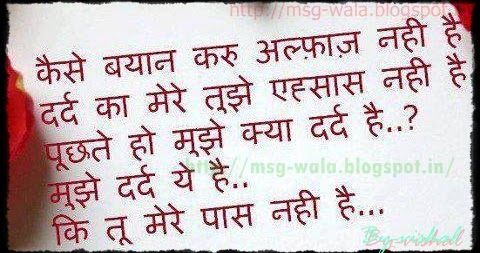 http://msg-wala.blogspot.in/
कैसे बयान करु अल्फ़ाज़ नही है
दर्द का मेरे तूझे एह्सास नही है
पूछते हो मूझे क्या दर्द है..?
http://msg-wala.blogspot.in/
मूझे दर्द ये है..
कि तू मेरे पास नही है...
By:vishal